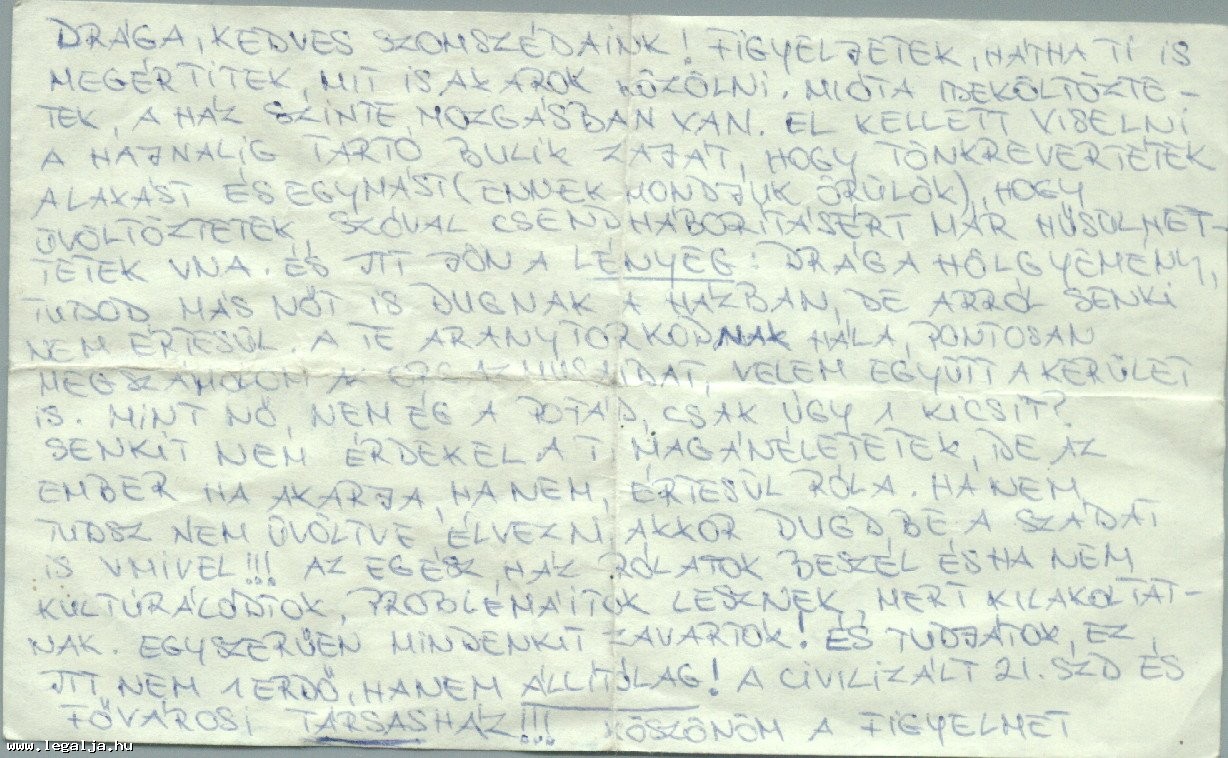 DRÁGA, KEDVES SZOMSZÉDAINK! FIGYELJETEK, HÁTHA TI IS
MEGÉRTITEK, MIT IS AKAROK KÖZÖLNI. MIÓTA IDEKÖLTÖZTE-
TEK, A HÁZ SZINTE MOZGÁSBAN VAN. EL KELLETT VISELNI
A HAJNALIG TARTÓ BULIK ZAJÁT, HOGY TÖNKREVERTÉTEK
A LAKÁST ÉS EGYMÁST (ENNEK MONDJUK ÖRÜLÖK), HOGY
ÜVÖLTÖZTETEK, SZÓVAL CSENDHÁBORÍTÁSÉRT MÁR HŰSÜLHET-
TETEK VNA. ÉS ITT JÖN A LÉNYEG: DRÁGA HÖLGYEMÉNY,
TUDOD MÁS NŐT IS DUGNAK A HÁZBAN, DE ARRÓL SENKI
NEM ÉRTESÜL. A TE ARANYTORKODNAK HÁLA, PONTOSAN
MEGSZÁMOLOM AZ VELEM EGYÜTT A KERÜLET
IS. MINT NŐ, NEM ÉG A POFÁD, CSAK ÚGY 1 KICSIT?
SENKIT NEM ÉRDEKEL A TI MAGÁNÉLETETEK, DE AZ
EMBER HA AKARJA, HA NEM, ÉRTESÜL RÓLA. HA NEM
TUDSZ NEM ÜVÖLTVE ÉLVEZNI, AKKOR DUGD BE A SZÁDAT
IS VMIVEL!!! AZ EGÉSZ HÁZ RÓLATOK BESZÉL ÉS HA NEM
KULTÚRÁLÓDTOK, PROBLÉMÁITOK LESZNEK, MERT KILAKOLTAT-
NAK. EGYSZERŰEN MINDENKIT ZAVARTOK! ÉS TUDJÁTOK, EZ
ITT NEM 1 ERDŐ, HANEM ÁLLÍTÓLAG! A CIVILIZÁLT 21. SZD ÉS
FŐVÁROSI TÁRSASHÁZ!!! KÖSZÖNÖM A FIGYELMET
www.legalja.hu